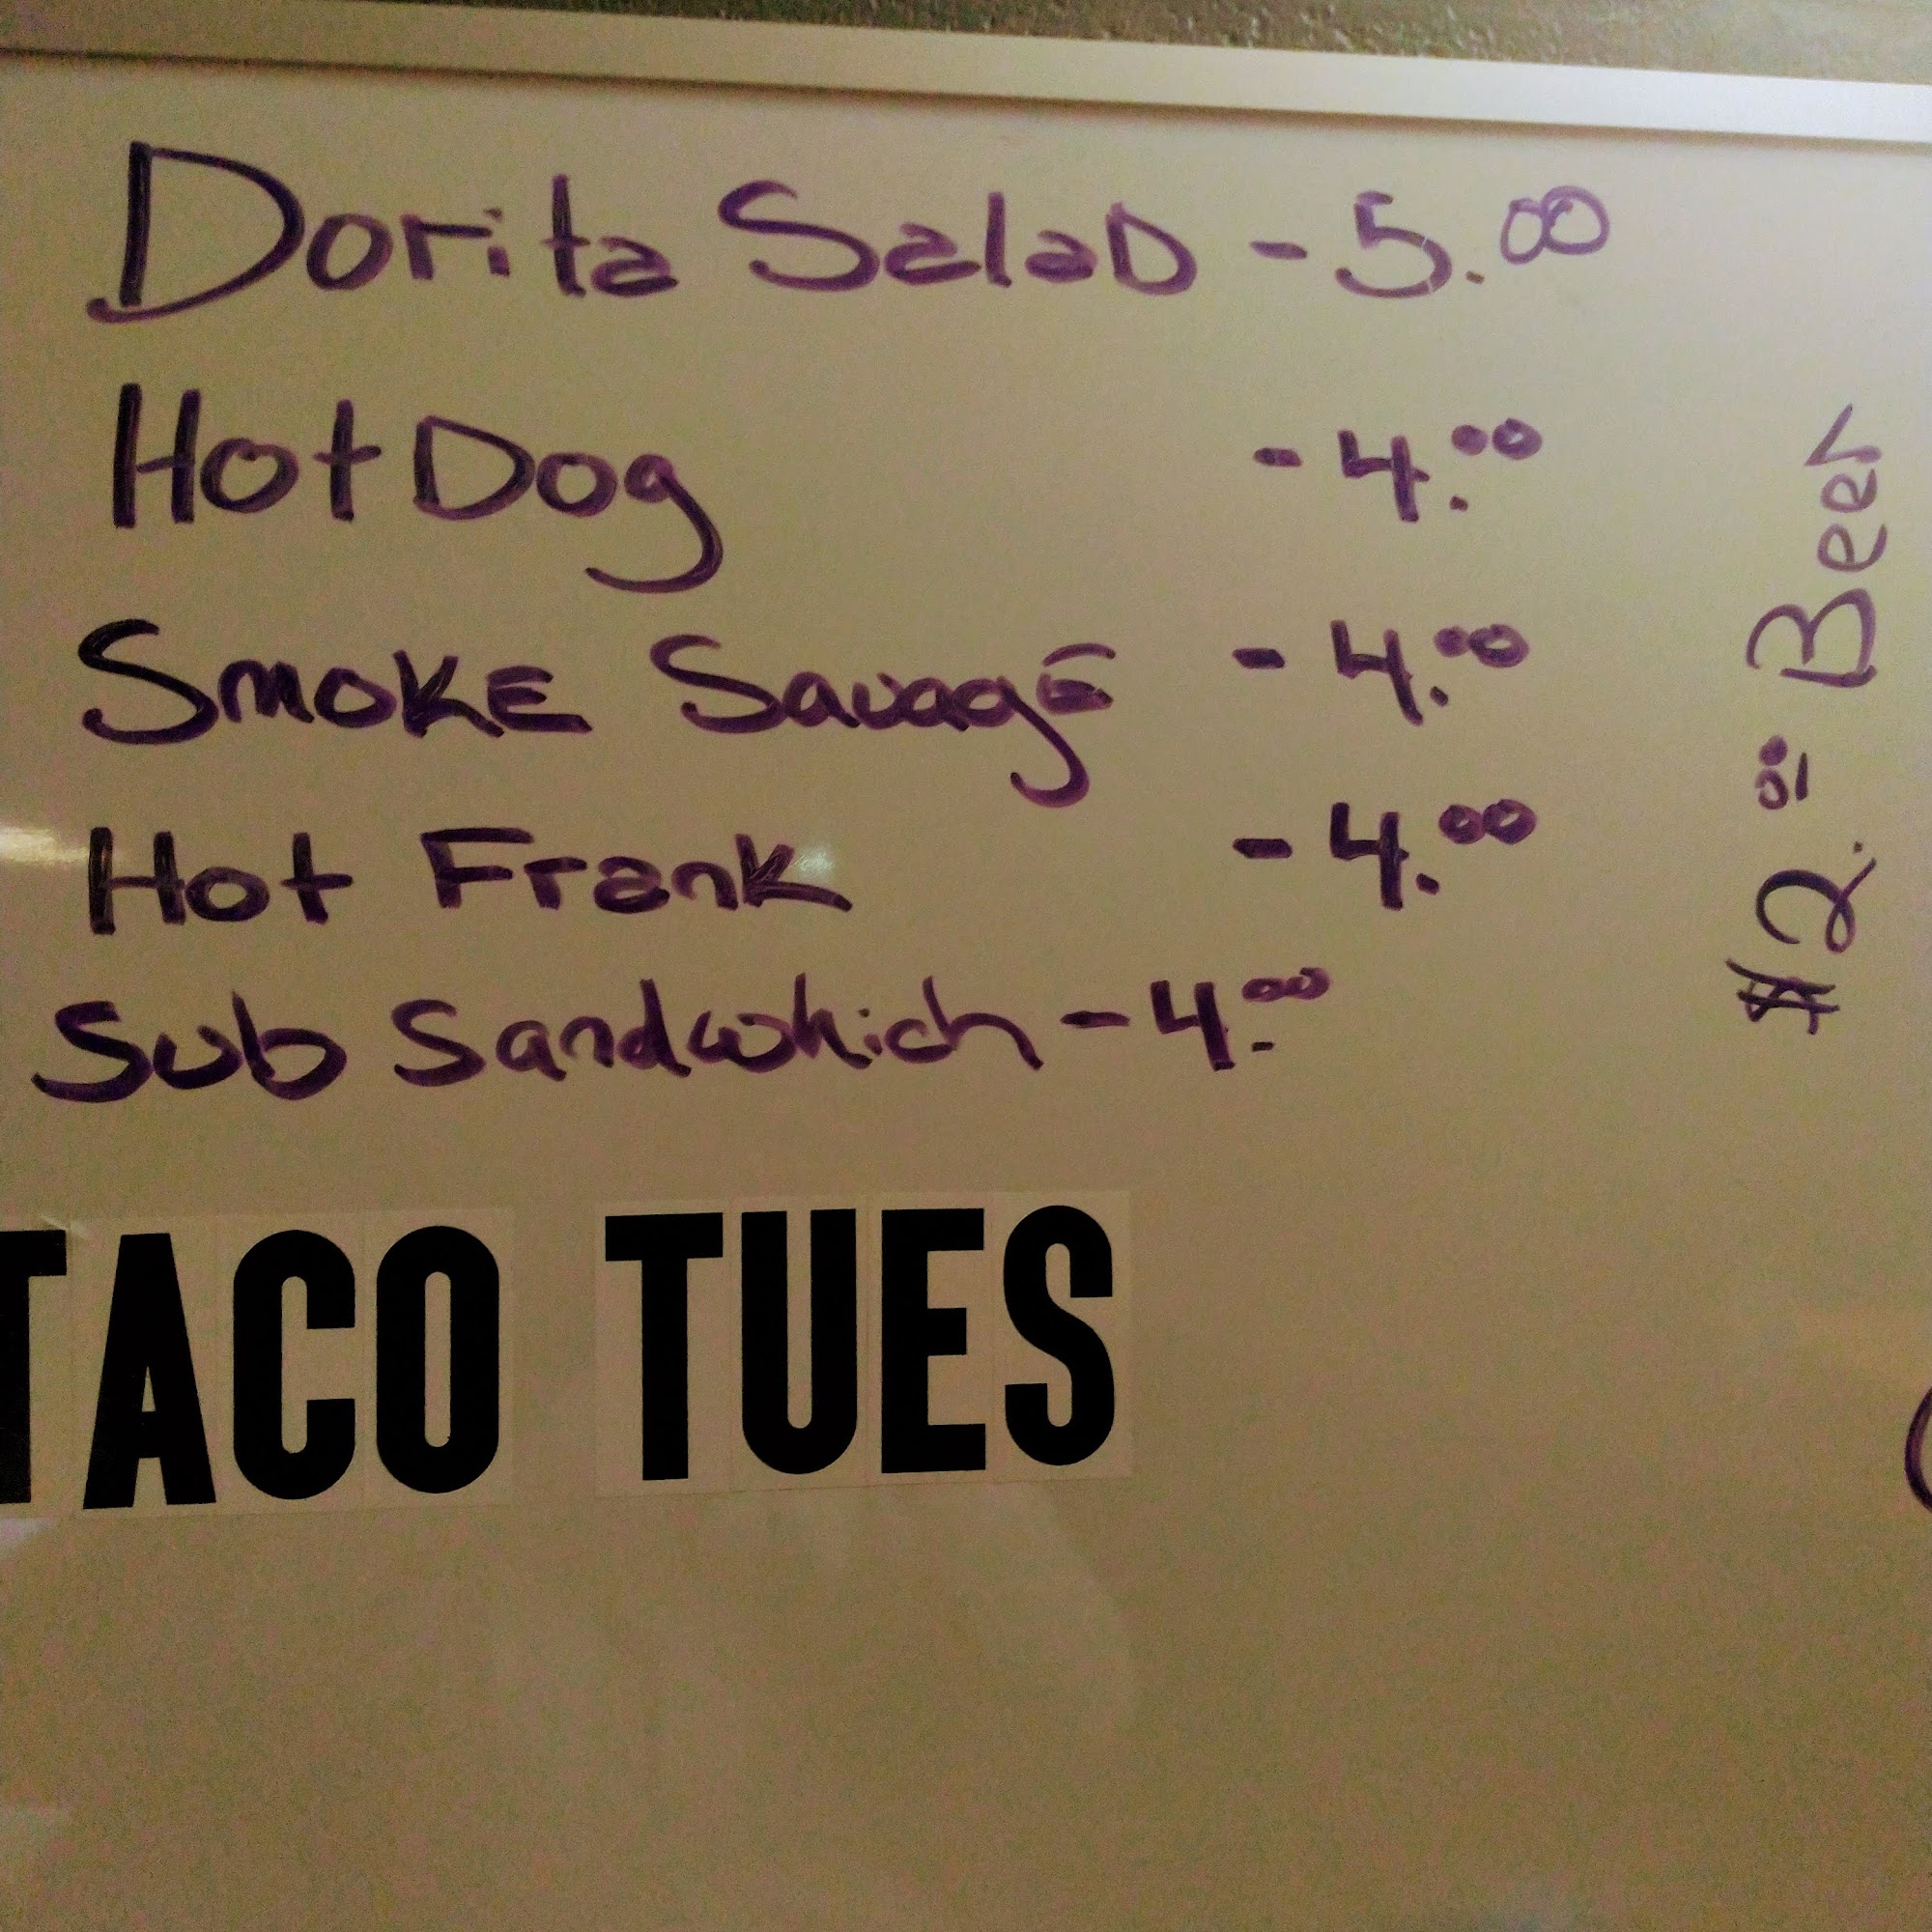 Dorita SalaD - 5.00
Hot Dog - 4.00
SMOKE SavagE - 4.00
Hot Frank - 4.00
Sub Sandwhich - 4.00
$2.00 Beer
TACO TUES